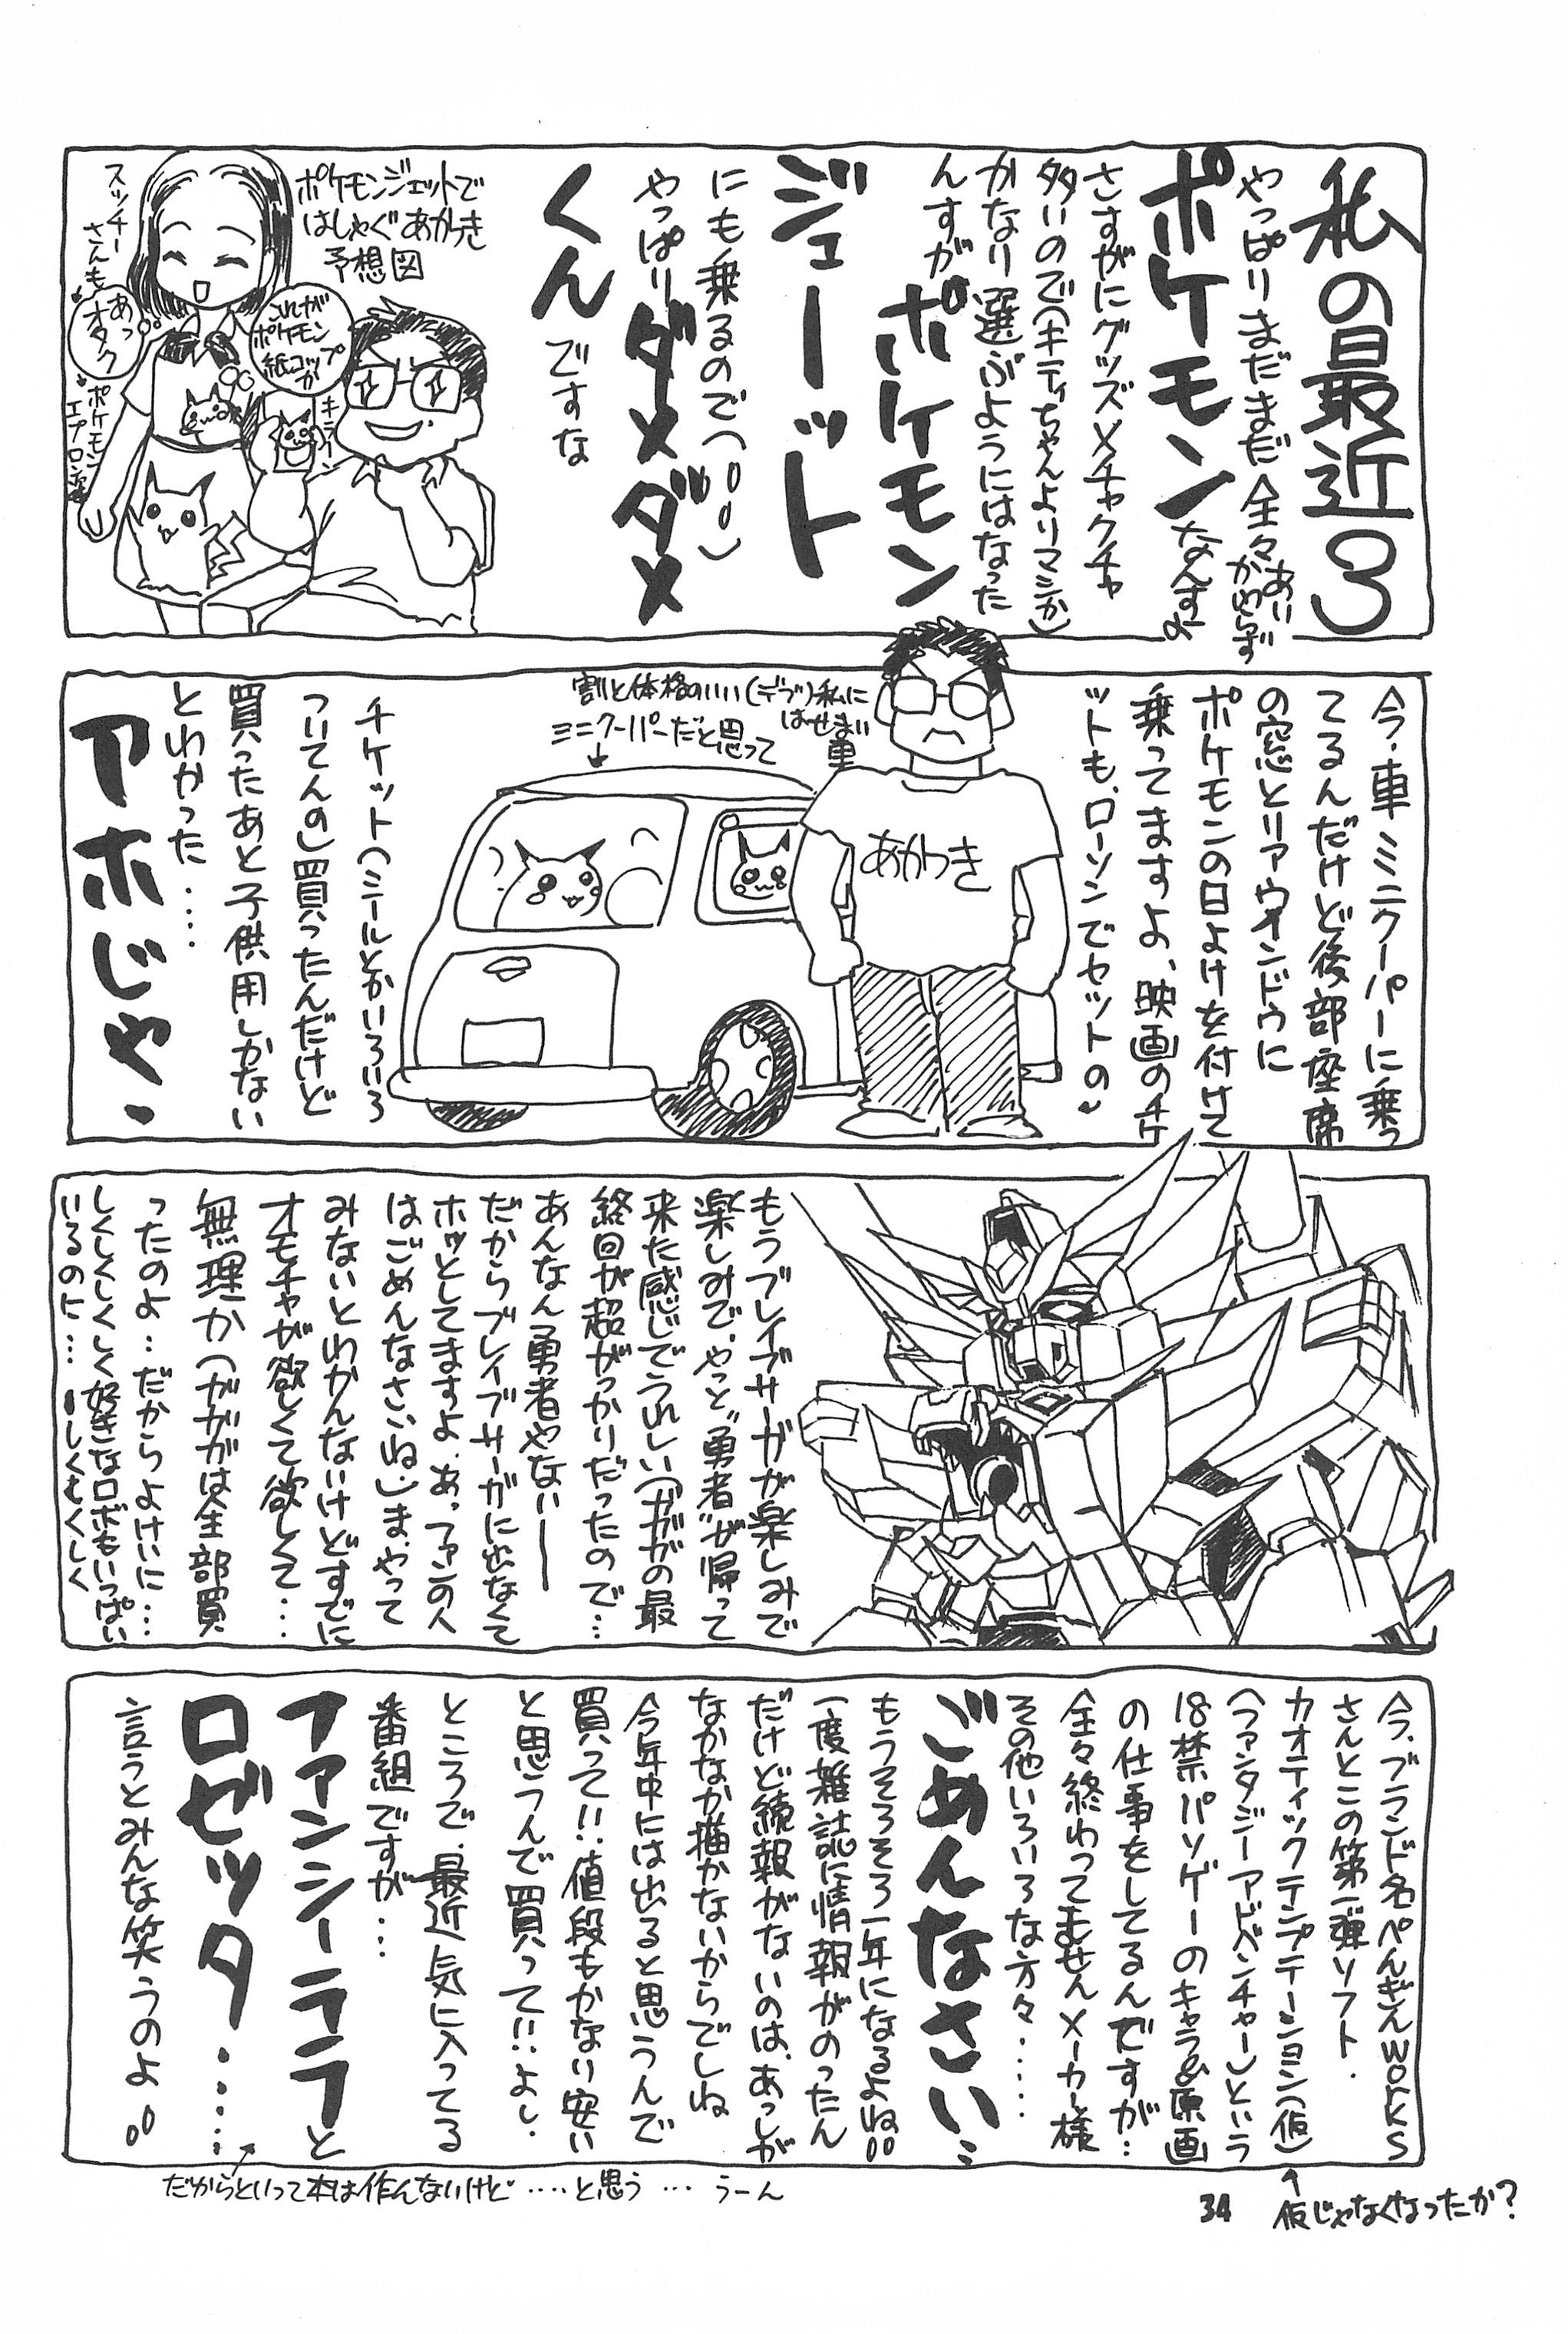 私の最近3
やっぱりまだまだ全々あいかわらず
ポケモンなんすよ
さすがにグッズメチャクチャ
多いので(キティちゃんよりマシか)
かなり選ぶようにはなった
んすがポケモン
ジェーット
にも乗るので(°°)
やっぱりダメダメ
くんですな
ポケモンジェットで
はしゃぐあかつき
予想図
これが
ポケモン
紙コップ
か
キラーン
あっ
オタク
スッチー
さんも
ポケモン
エプロン姿
今、車ミニクーパーに乗っ
てるんだけど後部座席
の窓とリアウインドウに
ポケモンの日よけを付けて
乗ってますよ、映画のチケ
ットも、ローソンでセットの
割と体格のいい(デブ)私に
はせまい
車
ミニクーパーだと思って
あかつき
チケット(シールとかいろいろ
ついてんの)買ったんだけど
買ったあと子供用しかない
とわかった‥‥
アホじゃ、
もうブレイブサーガが楽しみで
楽しみで、やっと"勇者"が帰って
来た感じでうれしい(ガガガの最
終回が超がっかりだったので…
あんなん勇者やない――
だからブレイブサーガに出なくて
ホッとしてますよ、あっファンの人
はごめんなさいね)ま、やって
みないとわかんないけどすでに
オモチャが欲しくて欲しくて…
無理か(ガガガは全部買
ったのよ…だからよけいに…
しくしくしくしく好きなロボもいっぱい
いるのに…しくしくしく
今、ブランド名ぺんぎんworks
さんとこの第一弾ソフト、
カオティックテンプテーション(仮)
(ファンタジーアドベンチャー)という
18禁パソゲーのキャラ&原画
の仕事をしてるんですが…
全々終わってませんメーカー様
その他いろいろな方々‥‥
ごめんなさい…
もうそろそろ一年になるよね
一度雑誌に情報がのったん
だけど続報がないのは、あっしが
なかなか描かないからでしね
今年中には出ると思うんで
買って!!値段もかなり安い
と思うんで買って!!よし、
ところで、最近気に入ってる
番組ですが…
ファンシーララと
ロゼッタ‥‥
言うとみんな笑うのよ
だからといって本は作んないけど‥‥と思う…うーん
34
仮じゃなくなったか?